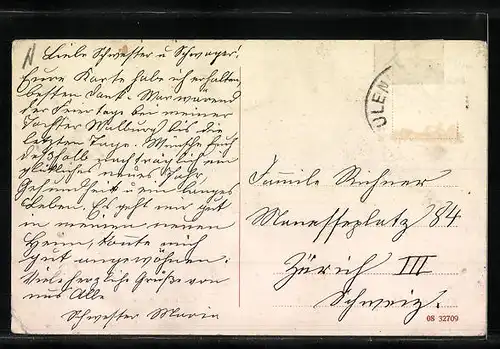 Liebe Schwester u Schwager!
Eure Karte habe ich erhalten
besten Dank. War wärend
der Feiertage bei meiner
Tochter Walburg bis die
letzten Tage. Wünsche Euch
deßhalb nachträglich ein
glückliches neues Jahr,
Gesundheit u ein langes
Leben. Es geht mir gut
in meinem neuen
Heim, konte mich
gut angewöhnen.
Viele herzliche Grüße von
uns Alle
Schwester Maria
ULEN
Familie Richner
Manesseplatz 84
Zürich III
Schweiz.
08 32709